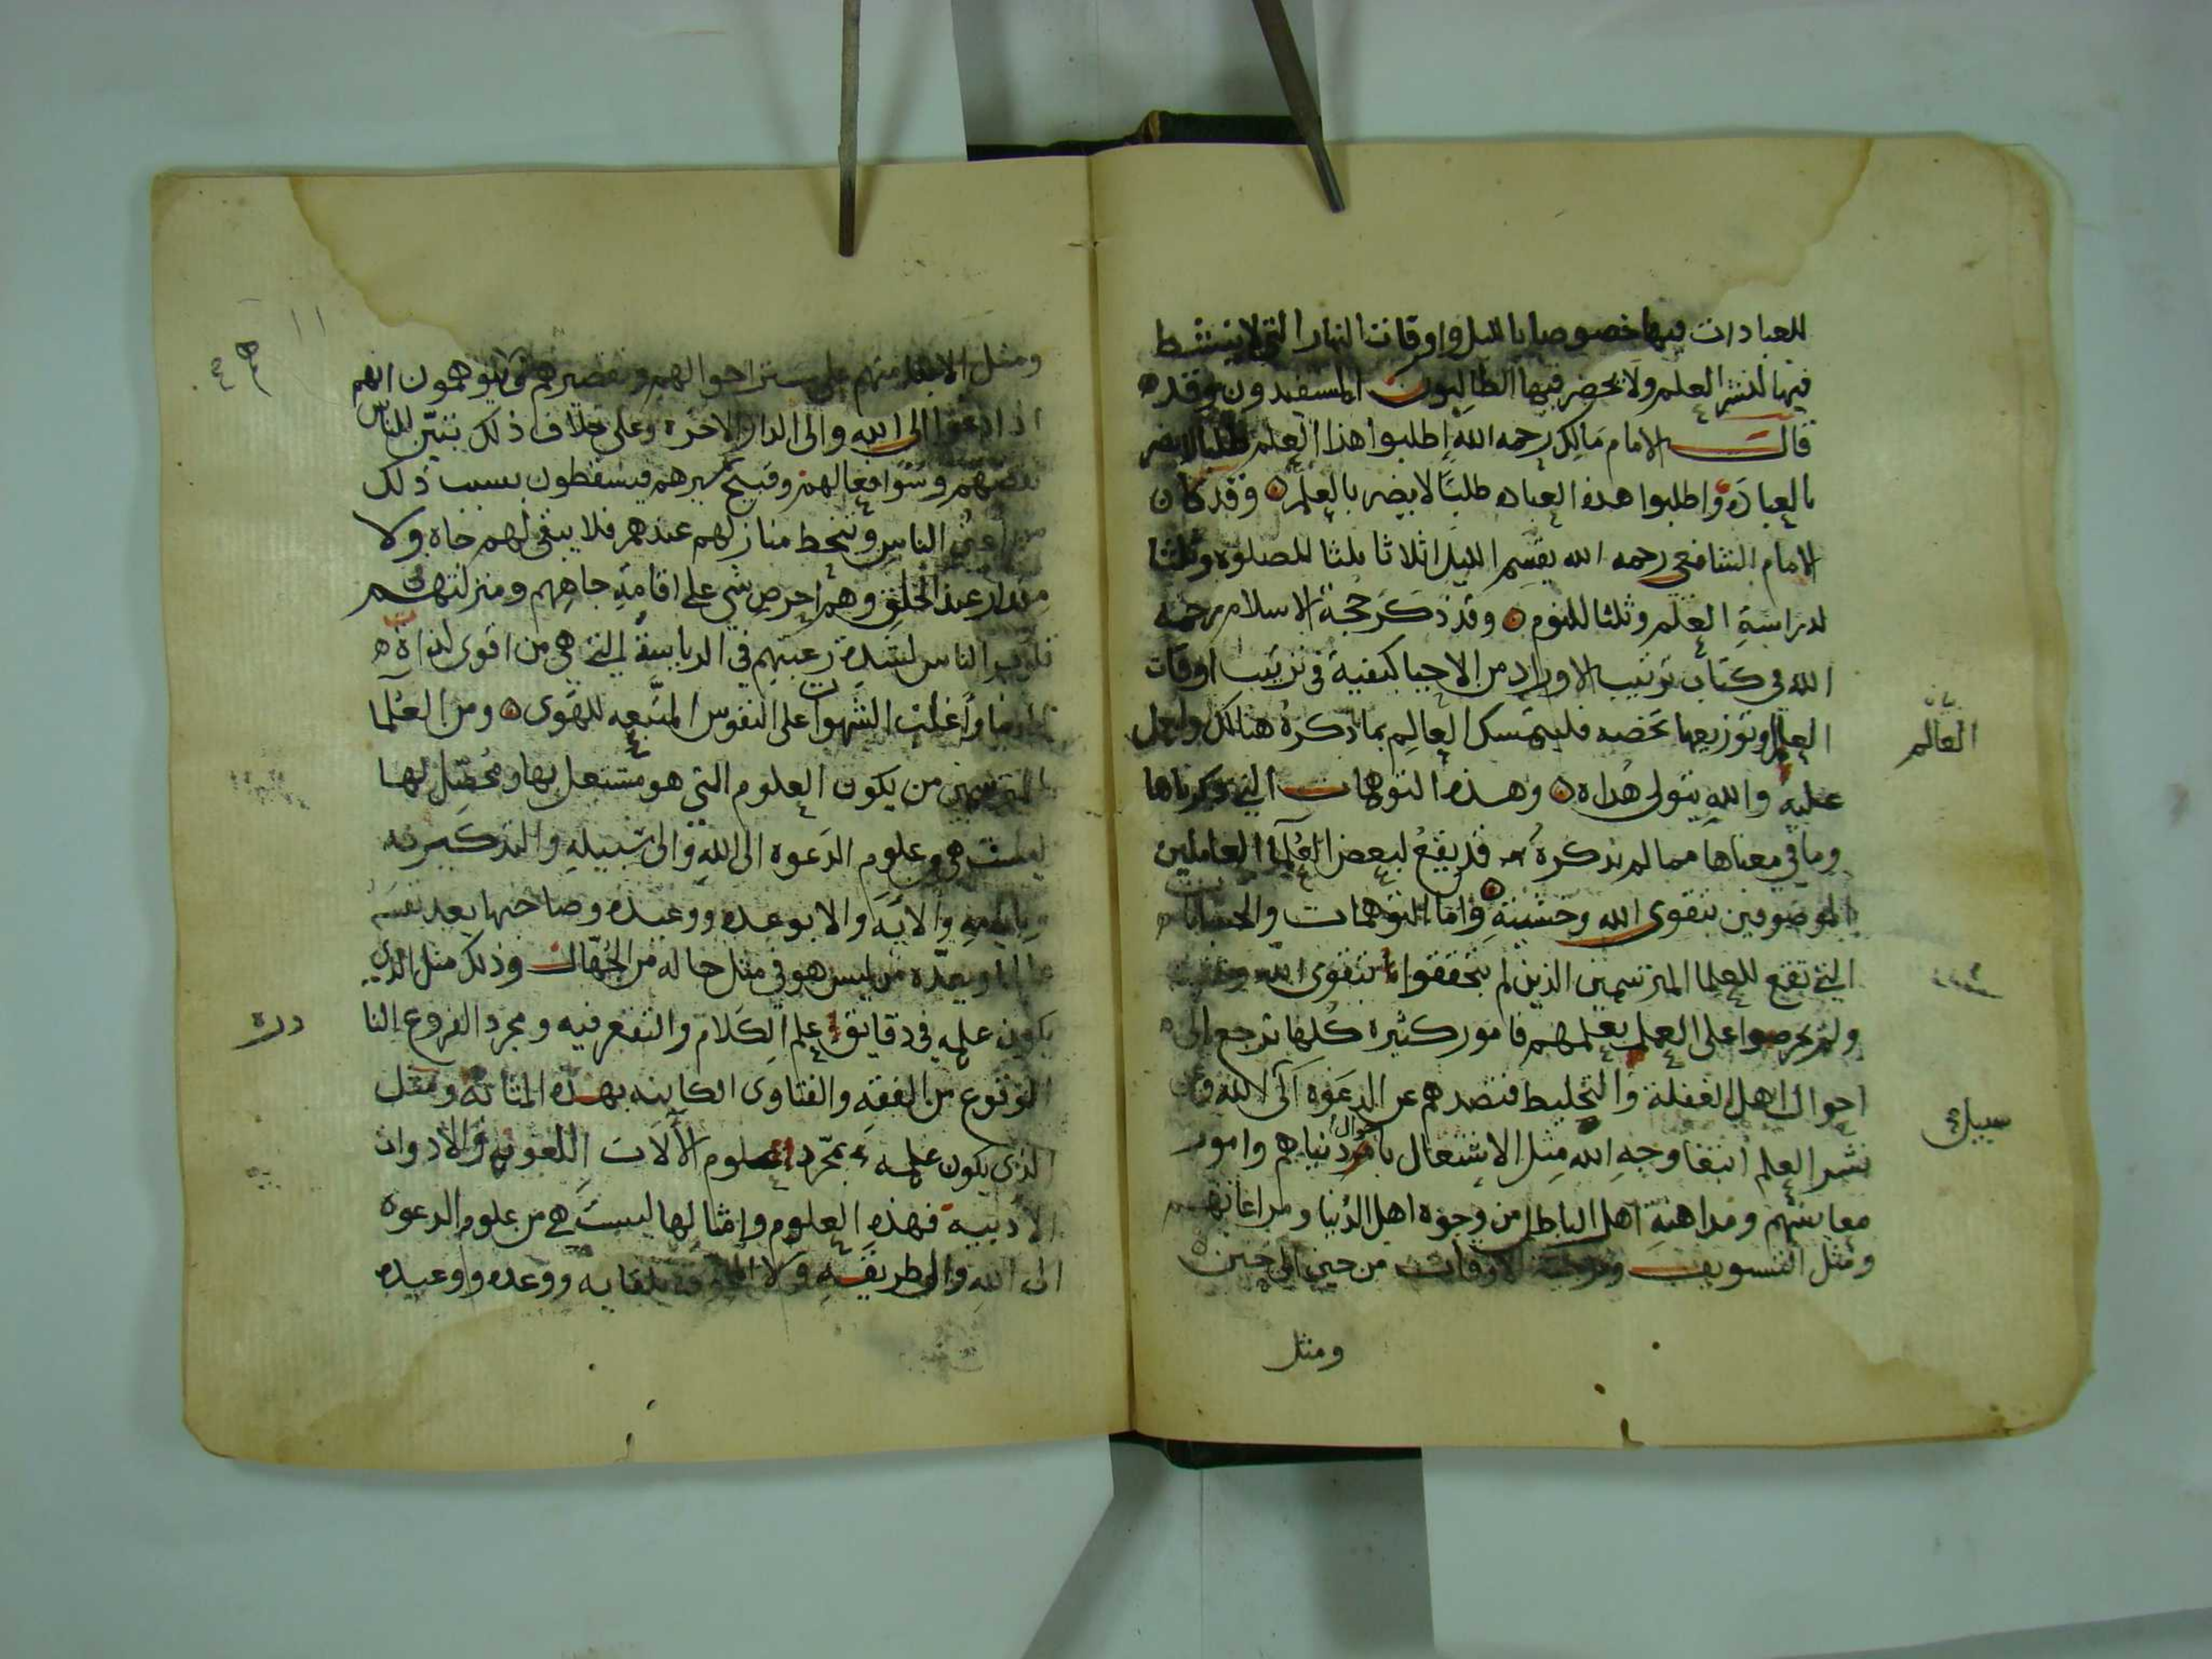 للعبادات فيها خصوصا بالليل واوقات النهار التي لا ينشط
فيها لنشر العلم ولا يحضر فيها الطالبون المستفيدون وقد
قال الامام مالك رحمه الله اطلبوا هذا العلم طلبا لا يضر
بالعبادة واطلبوا هذه العباده طلبًا لا يضر بالعلم وقد كان
الامام الشافعي رحمه الله يقسم الليل اثلاثا ثلثا للصلوة وثلثا
لدراسة العلم وثلثا للنوم وقد ذكر حجة الاسلام رحمه
الله في كتاب ترتيب الاوراد من الاحيا كيفية في ترتيب اوقات
العالم وتوزيعها تخصه فليتمسك العالم بما ذكره هنالك وليعمل
عليه والله يتولى هداه وهذه التوهمات التي ذكرناها
وما في معناها مما لم نذكره قد يقع لبعض العلما العاملين
الموصوفين بتقوى الله وخشيته واما التوهمات والحسبانات
التي تقع للعلما المترسمين الذين لم يتحققوا بتقوى الله
ولم يحرصوا على العمل بعلمهم فامور كثيره كلها ترجع الى
احوال اهل الغفلة والتخليط فتصدهم عن الدعوة الى الله
نشر العلم ابتغا وجه الله مثل الاشتغال باحوال دنياهم وامور
معايشهم ومداهنة اهل الباطل من وجوه اهل الدنيا ومراعاتهم
ومثل التسويف الاوقات من حين الى حين
ومثل
العالم
سبيل
١١
ومثل الابقا منهم على ستر احوالهم وتقصيرهم ويتوهمون انهم
اذا دعوا الى الله والى الدار الاخرة وعلى خلاف ذلك تبيّن للناس
نقصهم وسوء افعالهم وقبح سيرهم فيسقطون بسبب ذلك
من اعين الناس وتنحط منازلهم عندهم فلا يبقى لهم جاه ولا
مقدار عند الخلق وهم احرص شي على اقامة جاههم ومنزلتهم
قلوب الناس لشدة رغبتهم في الرياسة التي هي من اقوى لذات
واغلب الشهوات على النفوس المتّبعه للهوى ومن العلما
المترسمين من يكون العلوم التي هو مشتغل بها ومحصّل لها
ليست هي من علوم الدعوه الى الله والى سبيله والتذكير به
وبايامه والايه والا بوعده ووعيده وصاحبها يعد نفسه
عالما ويعدّه من ليس هو في مثل حاله من الجهّال وذلك مثل الذي
يكون علمه في دقايق علم الكلام والتقعر فيه ومجرد الفروع النا
الوقوع من الفقه والفتاوى الكاينه بهذه المثابة ومثل
الذي يكون علمه بمجرّد علوم الآلات اللغويه والادوات
الادبية فهذه العلوم وامثالها ليست هي من علوم الدعوة
الى الله والى طريقه ولا بلقايه ووعده ووعيده
درة